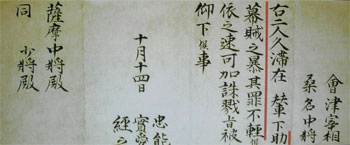 會津宰相
桑名中将
右二人久滞在 輦下助
幕賊之暴其罪不輕候
依之速可加誅戮旨被
仰下候事
十月十四日
忠能
實愛
經之
薩摩中将殿
同 少将殿